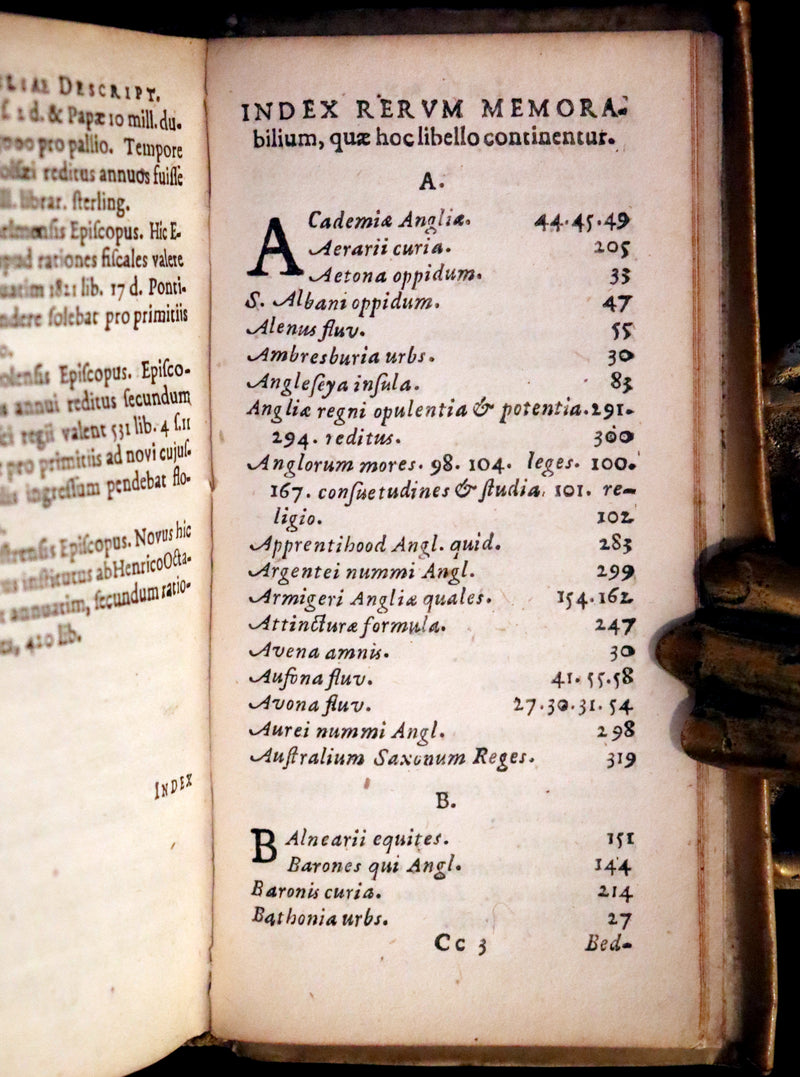 DESCRIPT.
d. & Papæ 10 mill. du.
pro pallio. Tempore
reditus annuos fuiſſe
librar. ſterling.
Epiſcopus. Hic E-
rationes fiſcales valere
1821 lib. 17 d. Ponti-
ſolebat pro primitiis
Epiſcopus. Epiſco-
annui reditus ſecundum
regii valent 531 lib. 4 ſ. 11
pro primitiis ad novi cujuſ-
ingreſſum pendebat flo-
Epiſcopus. Novus hic
inſtitutus ab Henrico Octa-
annuatim, ſecundum ratio-
lib.
INDEX
INDEX RERVM MEMORA-
bilium, quæ hoc libello continentur.
A.
ACademiæ Angliæ. 44.45.49
Aerarii curia. 205
Aetona oppidum. 35
S. Albani oppidum. 47
Alenus fluv. 55
Ambresburia urbs. 30
Angleſeya inſula. 83
Angliæ regni opulentia & potentia. 291.
294. reditus. 300
Anglorum mores. 98. 104. leges. 100.
167. conſuetudines & ſtudia. 101. re-
ligio. 102
Apprentihood Angl. quid. 283
Argentei nummi Angl. 299
Armigeri Angliæ quales. 154.162
Attincturæ formula. 247
Avena amnis. 30
Auſona fluv. 41.55.58
Avona fluv. 27.30.31.54
Aurei nummi Angl. 298
Auſtralium Saxonum Reges. 319
B.
BAlnearii equites. 151
Barones qui Angl. 144
Baronis curia. 214
Bathonia urbs. 27
Cc 3 Bed-